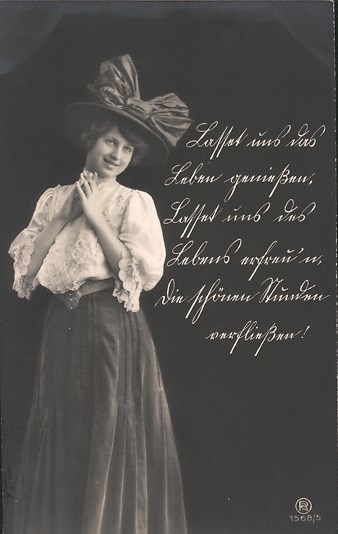 Lasset uns das
Leben genießen,
Lasset uns des
Lebens erfreu'n,
Die schönen Stunden
verfließen!
1568/5